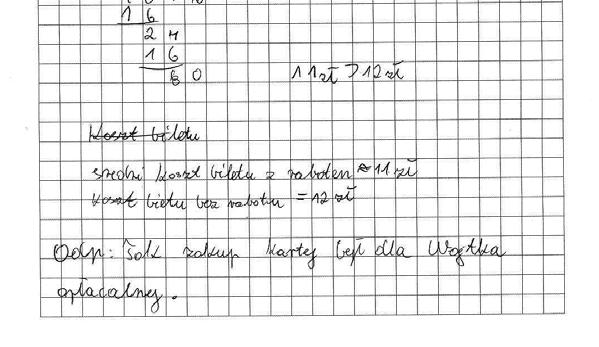 1 6
2 4
1 6
8 0
11 zł > 12 zł
Koszt biletu
średni koszt biletu z rabatem ≈ 11 zł
koszt bietu bez rabatu = 12 zł
Odp: Tak zakup karty był dla Wojtka
opłacalny.